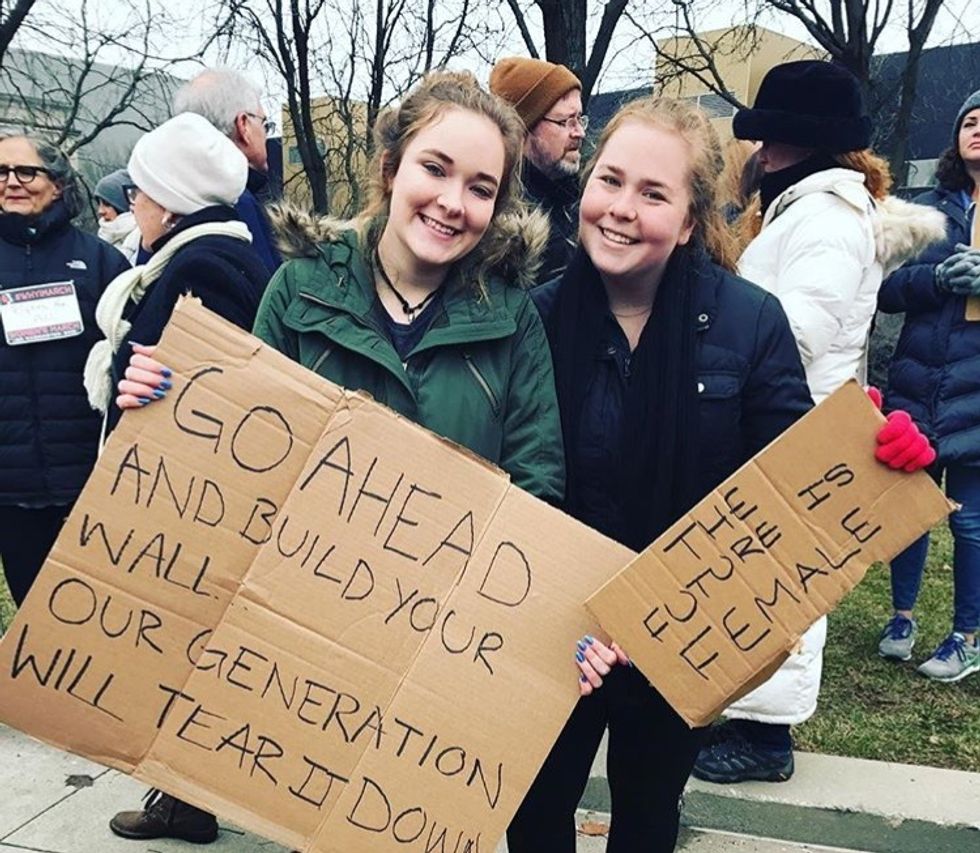 #WHYIMARCH
WOMEN'S MARCH
GO AHEAD
AND BUILD YOUR
WALL.
OUR GENERATION
WILL TEAR IT DOWN
THE
FUTURE IS
FEMALE